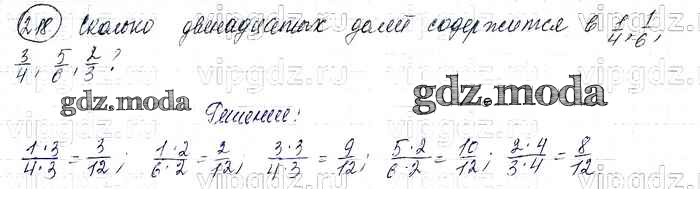 218 Сколько двенадцатых долей содержится в 1/4, 1/6,
3/4, 5/6, 2/3?
gdz.moda
gdz.moda
Решение:
1·3/4·3 = 3/12; 1·2/6·2 = 2/12, 3·3/4·3 = 9/12; 5·2/6·2 = 10/12; 2·4/3·4 = 8/12